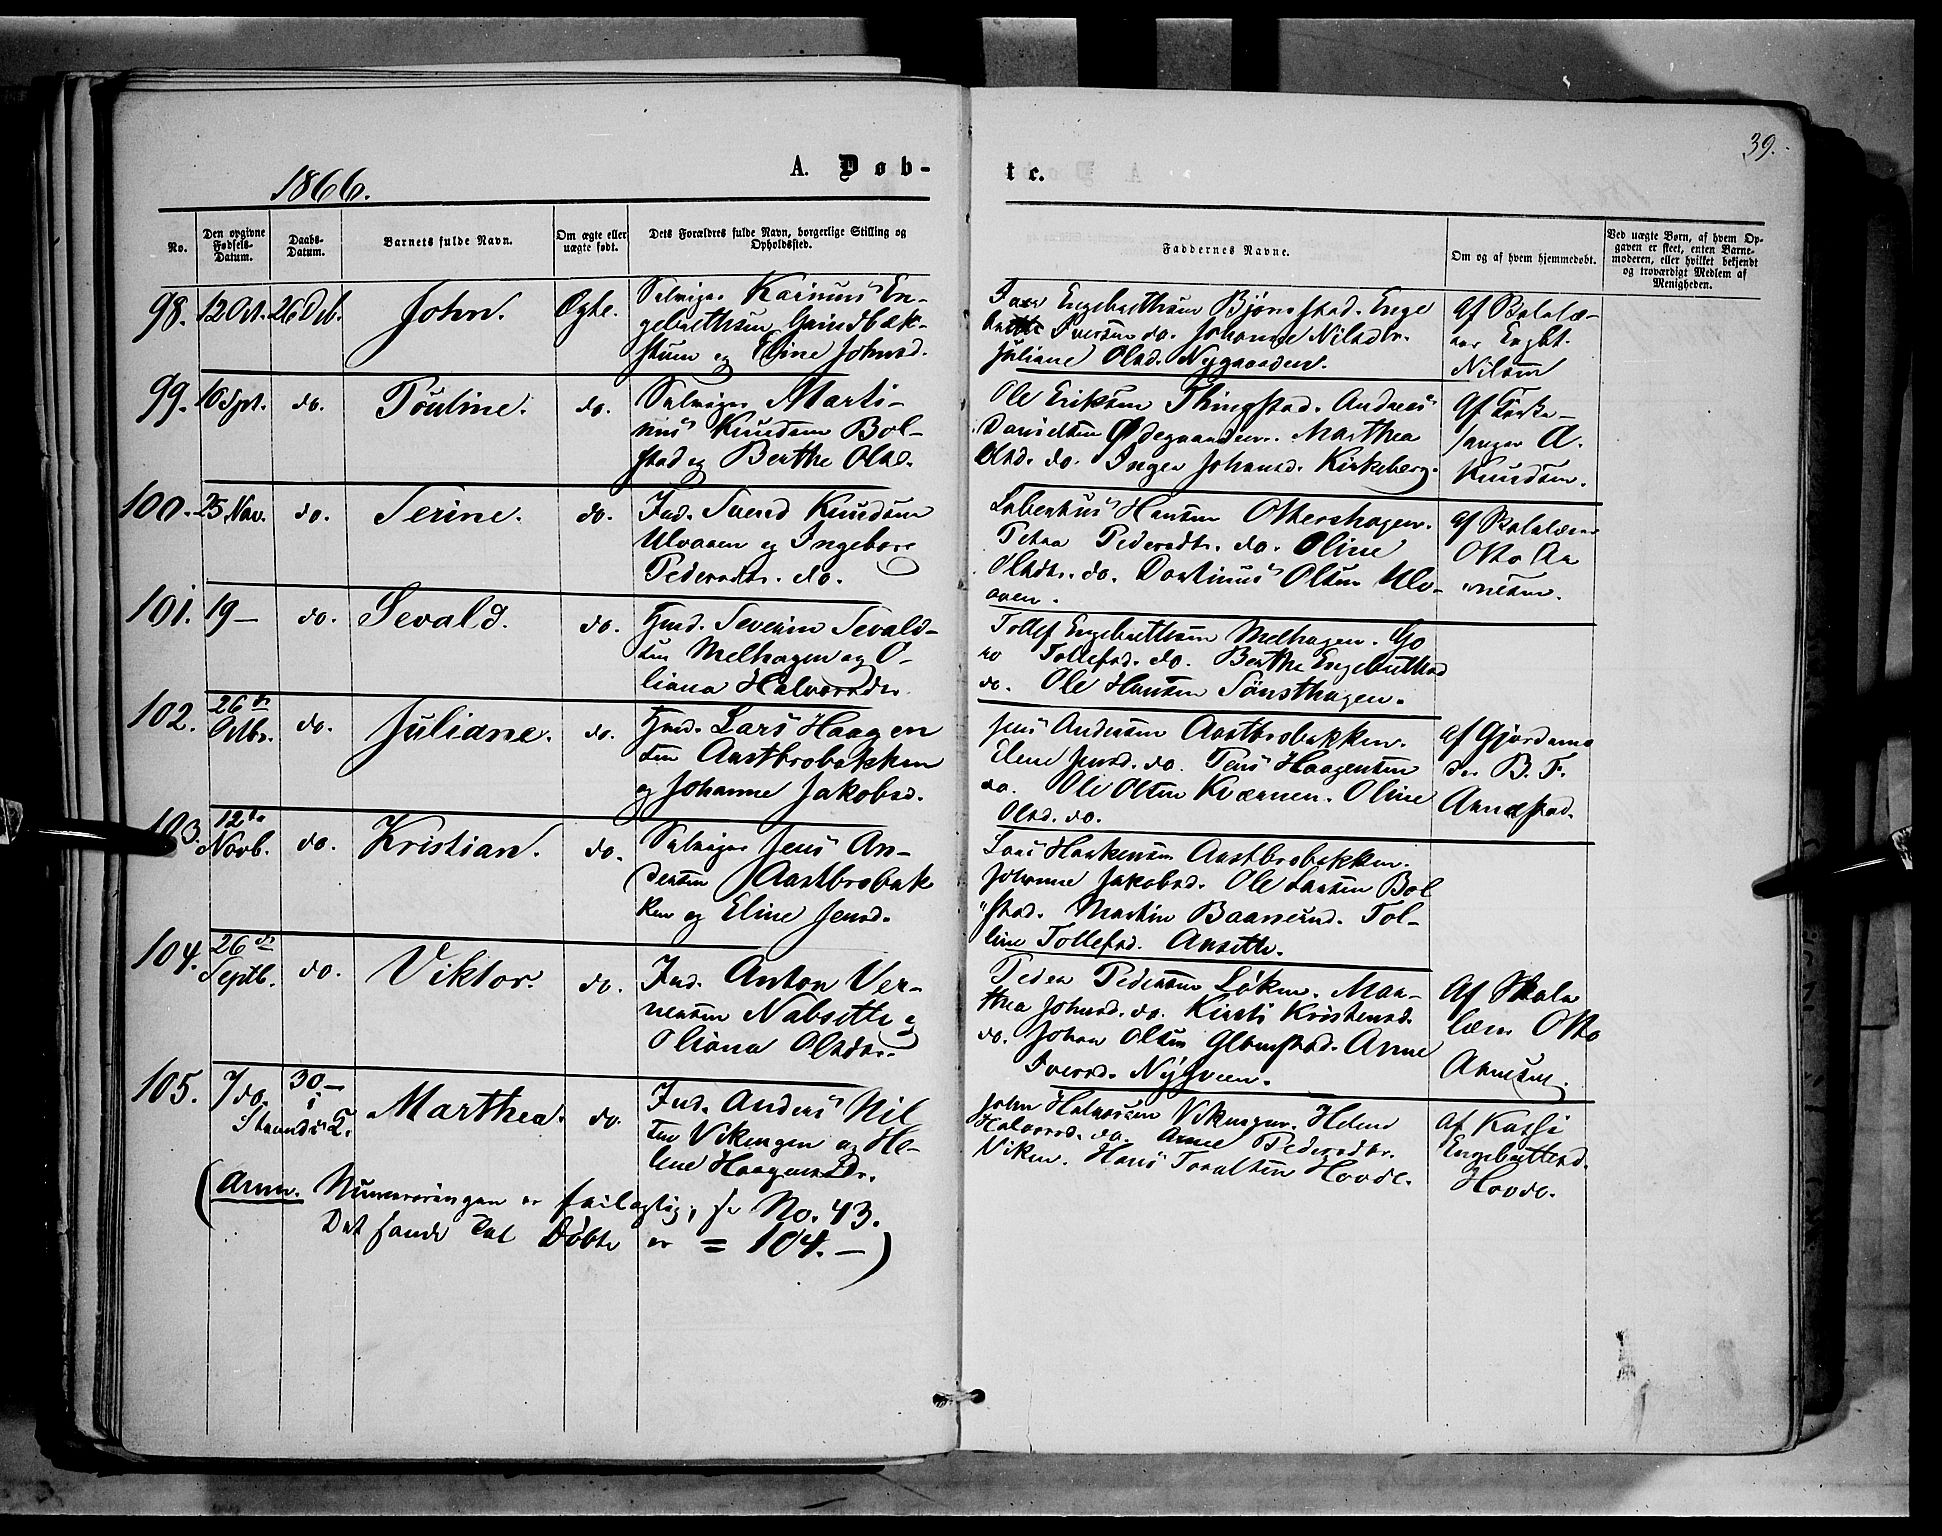 39.
1866.
A. Døb-
te.
No.
Den opgivne Fødsels-Datum.
Daabs-Datum.
Barnets fulde Navn.
Om ægte eller uægte født.
Dets Forældres fulde Navn, borgerlige Stilling og Opholdssted.
Faddernes Navne.
Om og af hvem hjemmedøbt.
Ved uægte Børn, af hvem Opgaven er skeet, enten Barnemoderen, eller hvilket bekjendt og troværdigt Medlem af Menigheden.
98. 12 Oct. 26 Deb. John. Ægte.
Selveier Karinus En-
gebrethsen Grindbak-
stuen og Eline Johnsd.
Engebrethsen Bjørnstad. Enge
Iversen do. Johanne Nilsdtr.
Juliane Olsd. Nygaarden.
Af Skolelæ-
rer Engbt.
Nilsen
99. 10 Spt. do. Pouline. do.
Selveier Marti-
nus Knudsen Bol-
stad og Berthe Olsd.
Ole Eriksen Thingstad. Andreas
Danielsen Ødegaarden. Marthea
Olsd. do. Inger Johansd. Kirkeberg.
Af Kirke-
sanger A.
Knudsen.
100. 25 Nov. do. Serine. do.
Ind. Svend Knudsen
Ulvaaen og Ingebore
Pedersdtr. do.
Laberthus Hansen Ottershagen.
Petra Pedersdtr. do. Oline
Olsdtr. do. Dortinus Olsen Ulv-
aaen.
Af Skolelærer
Otto Aa
rnesen.
101. 19 — do. Sevald. do.
Hmd. Severin Sevald-
sen Melhagen og O-
liana Halvorsdtr.
Tollef Engebrethsen Melhagen. Go
ro Tollefsd. do. Berthe Engebrethsd
do. Ole Hansen Sønsthagen.
102. 26de Octbr. do. Juliane. do.
Hmd. Lars Haagen
sen Aastbrobakken
og Johanne Jakobsd.
Jens Andersen Aastbrobakken.
Elene Jensd. do. Jens Haagensen
do. Ole Olsen Kværnen. Oline
Olsd. do.
Af Gjordemo
der B. T.
Arnæstad.
103. 12te Novb. do. Kristian. do.
Selveier Jens An-
dersen Aastbrobak
ken og Eline Jensd.
Lars Haakensen Aastbrobakken.
Johanne Jakobsd. Ole Larsen Bol
stad. Martin Baarsund. Tol-
line Tollefsd. Ansette.
104. 26de Septb. do. Viktor. do.
Ind. Anton Ver-
nersen Nabsette og
Oliana Olsdtr.
Peder Pedersen Løken. Mar-
thea Johnsd. do. Kirsti Kristensd.
do. Johan Olsen Glæmstad. Anne
Iversd. Nysveen.
Af Skole
lærer Otto
Arnesen.
105. 7 do. 30 — i Strands K. Marthea. do.
Ind. Anders Nil
sen Vikengen og He-
lene Haagensdr.
John Halvorsen Vikengen. Helene
Halvorsd. do. Anne Pedersdtr.
Viken. Hans Toralsen Hovde.
Af Kasti
Engebrettsd.
Hovde.
(Anm. Numereringen er feilagtig, se No. 43.
Det sande Tal Døbte er = 104. —)